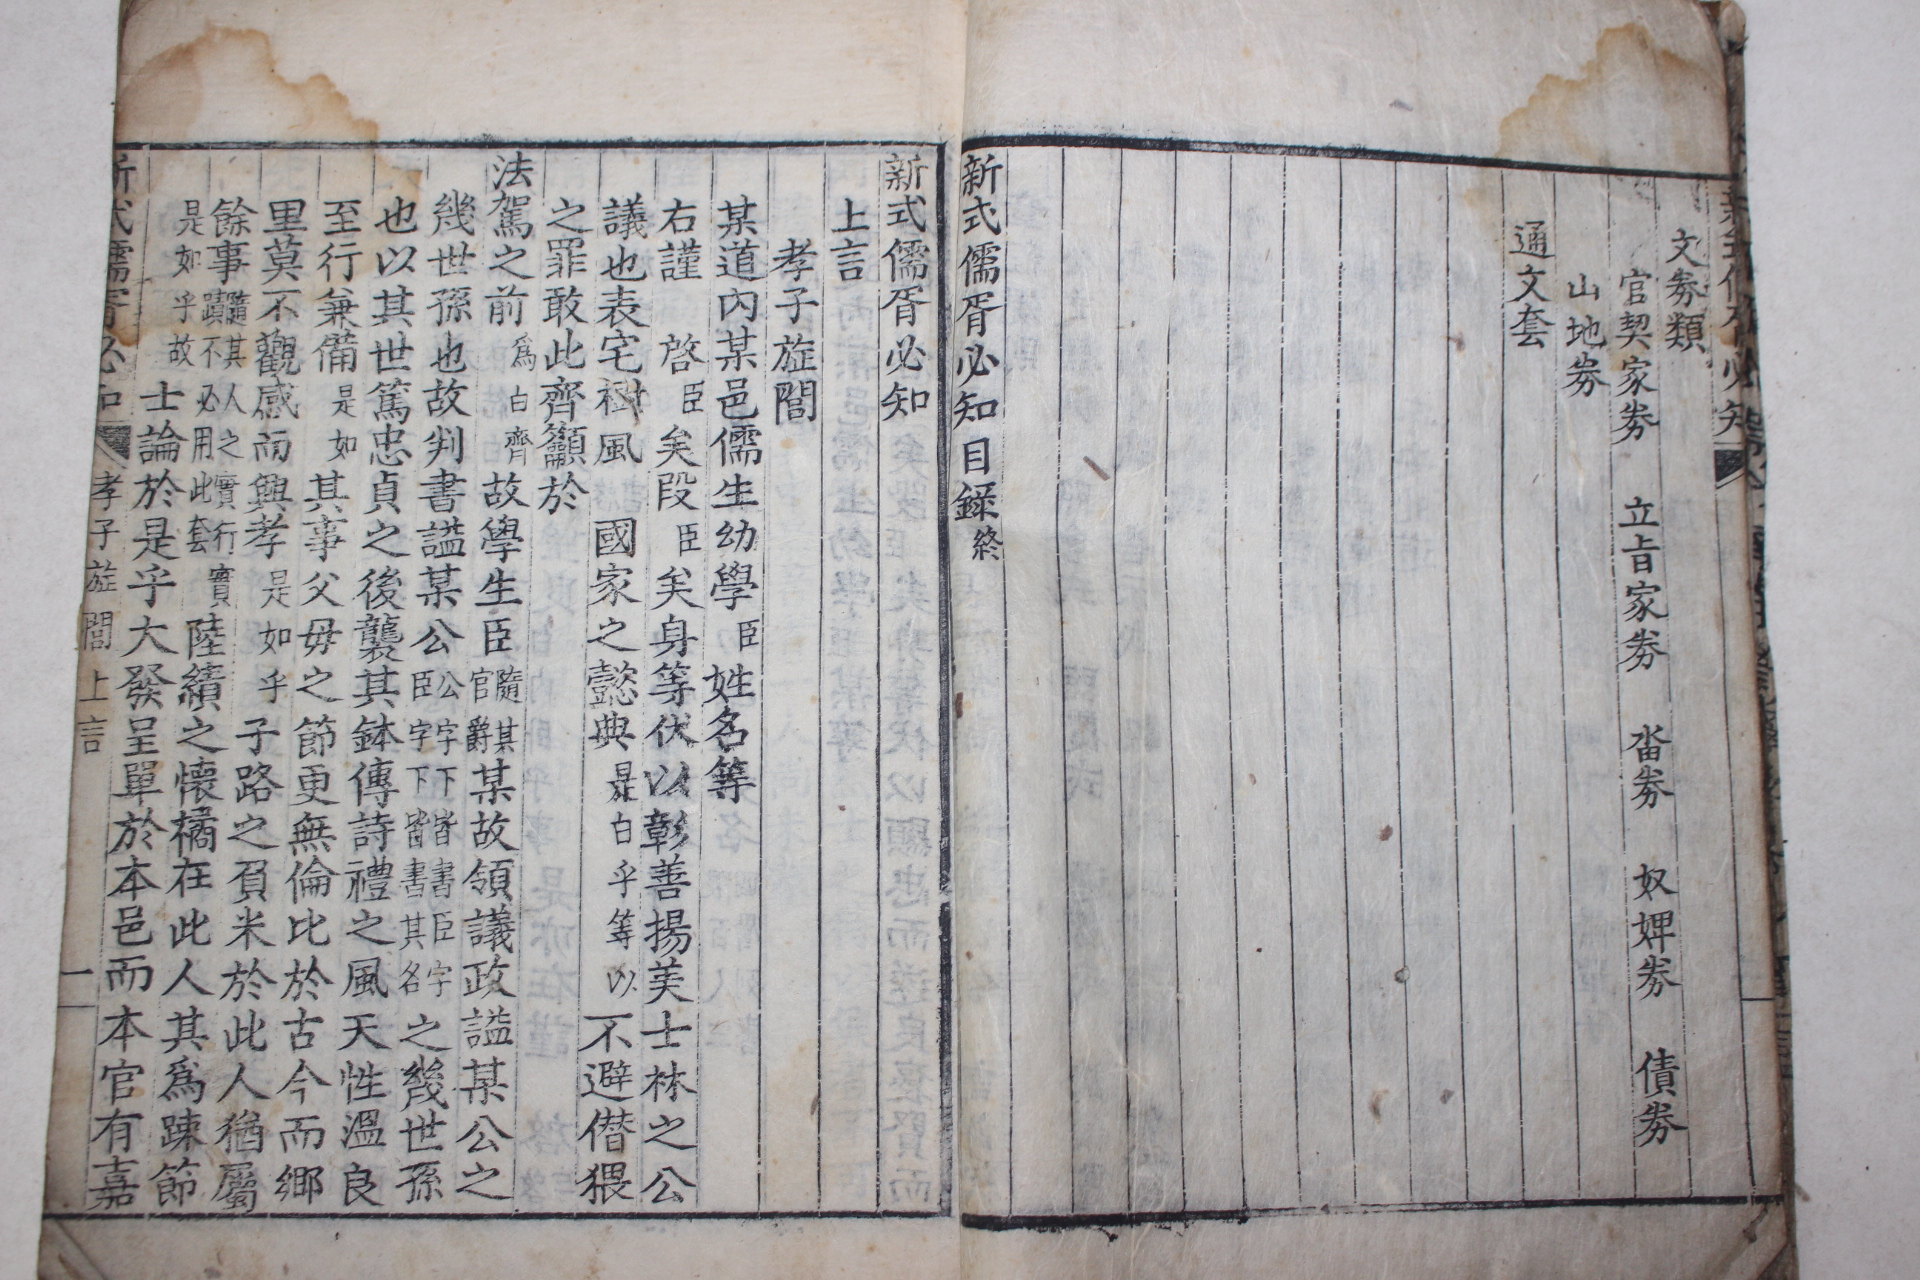 文劵類
官契家劵 立旨家劵 畓劵 奴婢劵 債劵
山地劵
通文套
新式儒胥必知目錄終
新式儒胥必知
上言
孝子旌閭
某道內某邑儒生幼學臣姓名等
右謹 啓臣矣段臣矣身等伏以彰善揚美士林之公
議也表宅樹風 國家之懿典是白乎等以不避僭猥
之罪敢此齊籲於
法駕之前爲白齊故學生臣隨其官爵某故領議政謚某公之
幾世孫也故判書謚某公公字下皆書臣字臣字下皆書其名之幾世孫
也以其世篤忠貞之後襲其鉢傳詩禮之風天性溫良
至行兼備是如其事父母之節更無倫比於古今而鄉
里莫不觀感而興孝是如乎子路之負米於此人猶屬
餘事隨其人之實行實蹟不必用此套陸績之懷橘在此人其爲踈節
是如乎故士論於是乎大發呈單於本邑而本官有嘉
新式儒胥必知 孝子旌閭上言 一